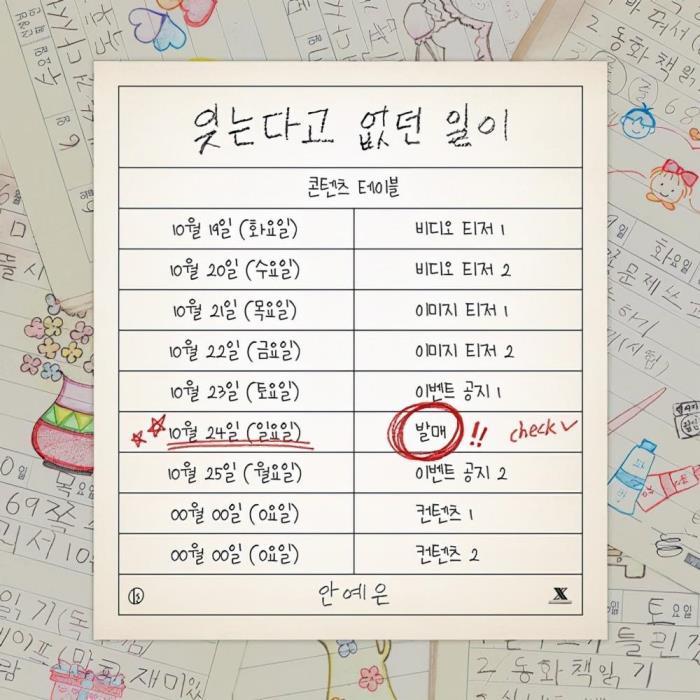 잊는다고 없던 일이
콘텐츠 테이블
10월 19일 (화요일) 비디오 티저 1
10월 20일 (수요일) 비디오 티저 2
10월 21일 (목요일) 이미지 티저 1
10월 22일 (금요일) 이미지 티저 2
10월 23일 (토요일) 이벤트 공지 1
10월 24일 (일요일) 발매 !! check
10월 25일 (월요일) 이벤트 공지 2
00월 00일 (0요일) 컨텐츠 1
00월 00일 (0요일) 컨텐츠 2
안예은
X
2 동화책 읽기
화요일
토요일
2. 동화책 읽기